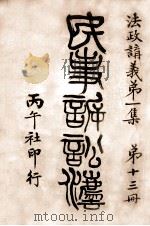 法政講義第一集　第十三冊
民事訴訟法
丙午社印行
www.docsriver.com